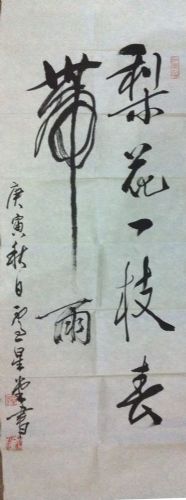 梨花一枝春
帶雨
庚寅秋日星堂書